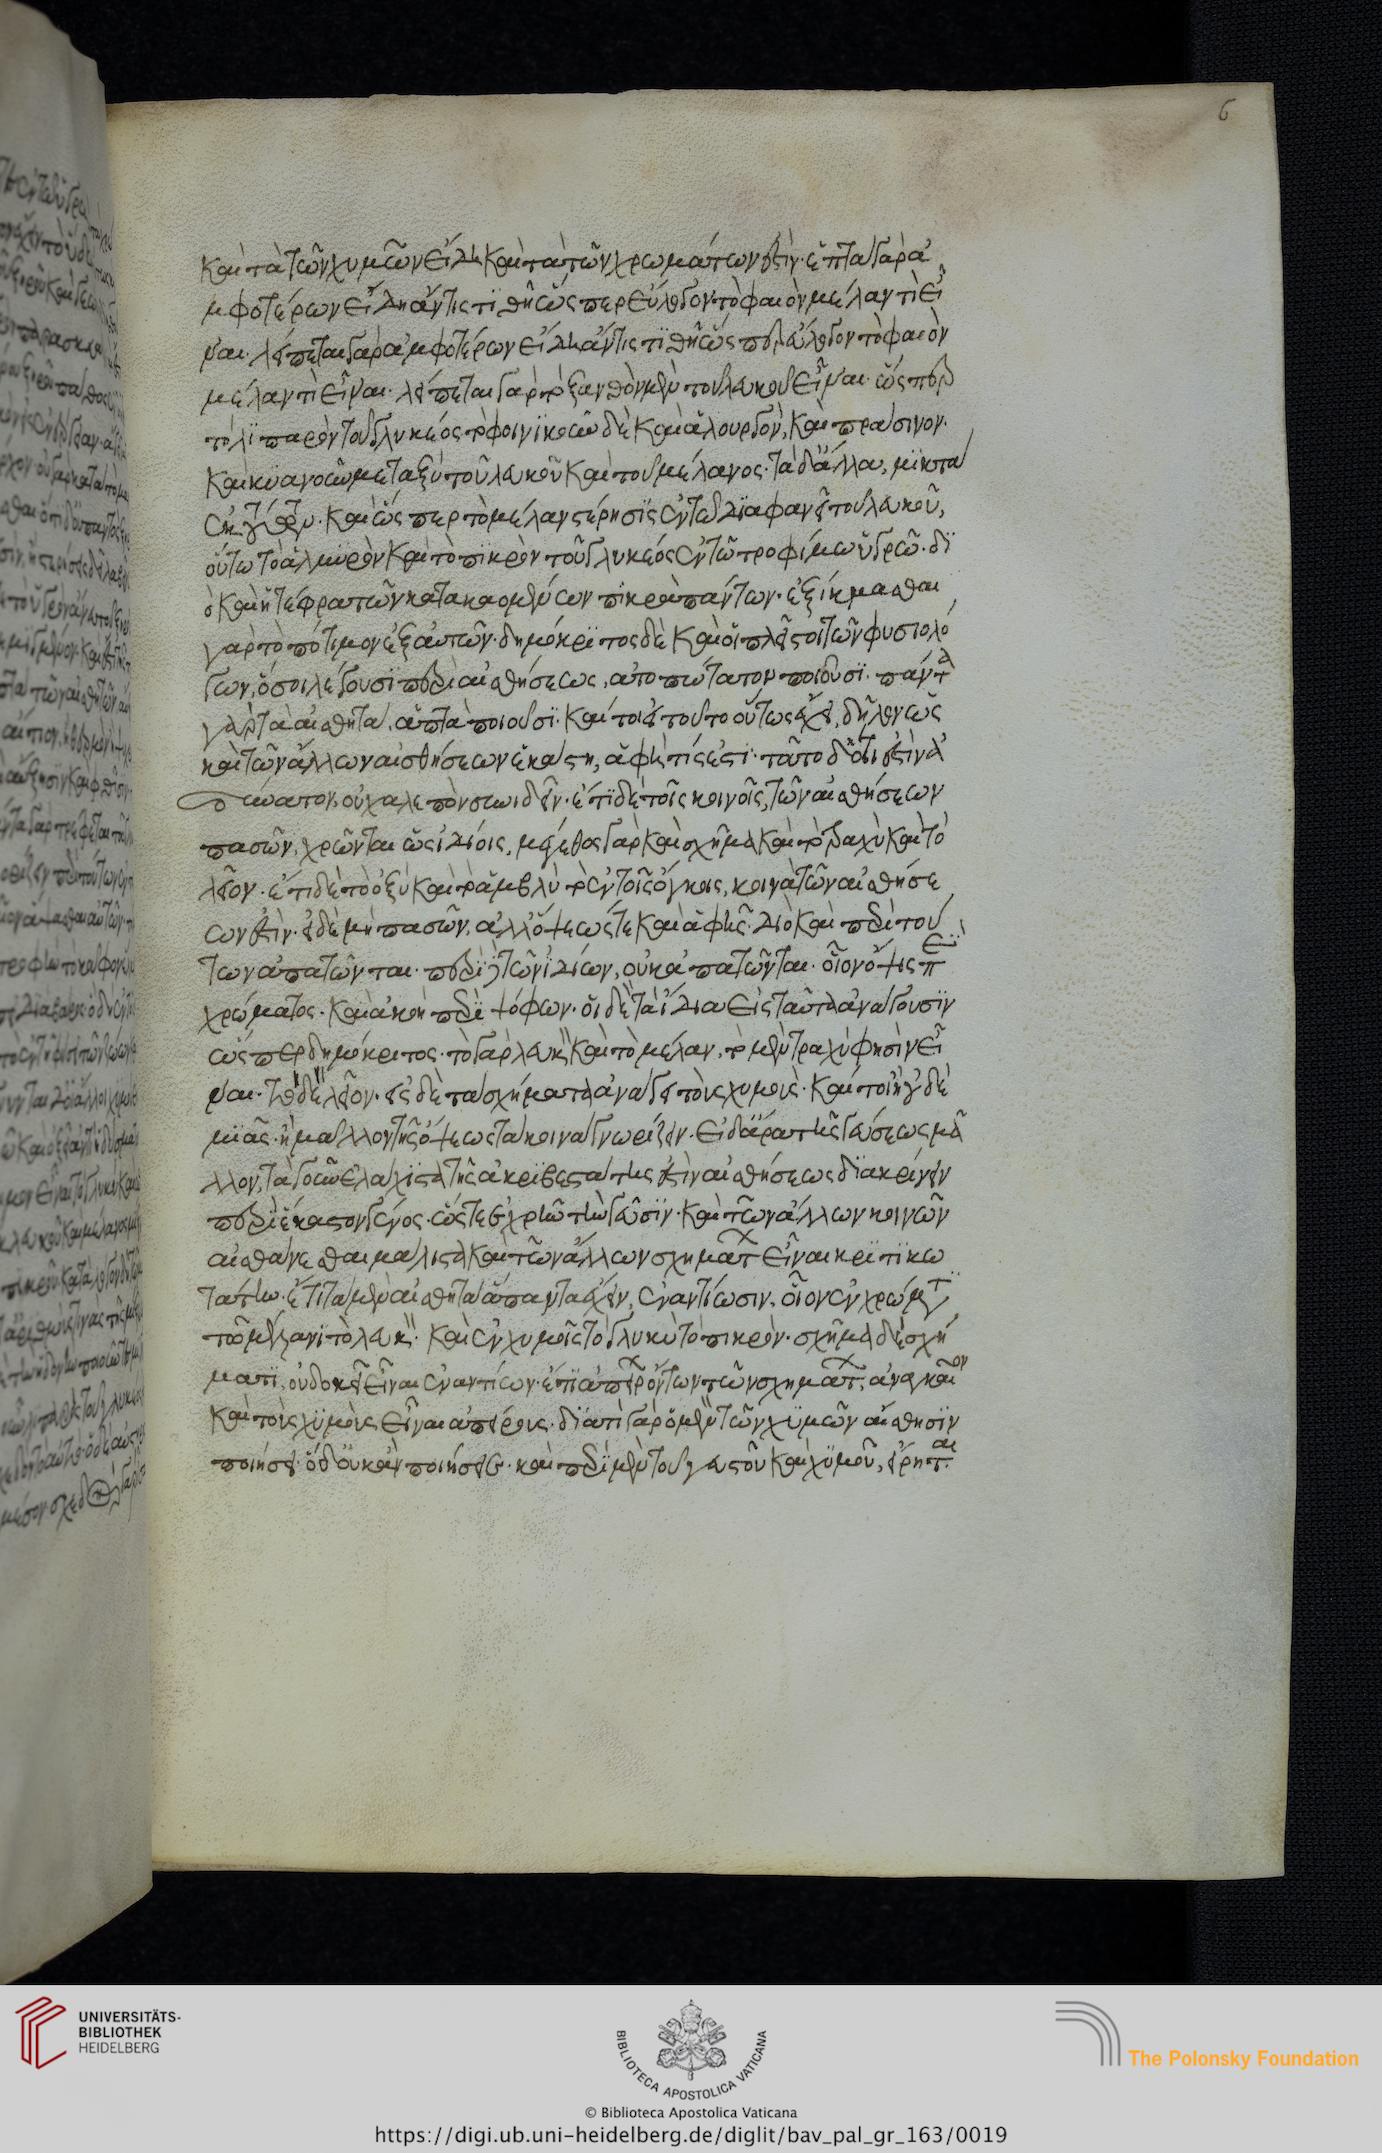 6
καὶ τὰ τῶν χυμῶν εἴδη καὶ τὰ τῶν χρωμάτων ἐστίν· ἑπτὰ γὰρ ἀ
μφοτέρων εἴδη ἄν τις τιθῇ ὥσπερ εὔλογον τὸ φαιὸν μέλαν τὶ εἶ
ναι· λείπεται γὰρ ἀμφοτέρων εἴδη ἄν τις τιθῇ ὥσπερ εὔλογον τὸ φαιὸν
μέλαν τὶ εἶναι· λείπεται γὰρ τὸ ξανθὸν μὲν τοῦ λευκοῦ εἶναι· ὥσπερ
τὸ λιπαρὸν τοῦ γλυκέος τὸ φοινικοῦν δὲ καὶ ἁλουργὸν, καὶ πράσινον·
καὶ κυανοῦν μεταξὺ τοῦ λευκοῦ καὶ τοῦ μέλανος· τὰ δ' ἄλλα, μικτὰ
ἐκ τούτων· καὶ ὥσπερ τὸ μέλαν στέρησις ἐν τῷ διαφανεῖ τοῦ λευκοῦ,
οὕτω τὸ ἁλμυρὸν καὶ τὸ πικρὸν τοῦ γλυκέος ἐν τῷ τροφίμῳ ὑγρῷ· δι
ὸ καὶ ἡ τέφρα τῶν κατακαομένων πικρὰ πάντων· ἐξίκμασθαι
γὰρ τὸ πότιμον ἐξ αὐτῶν· δημόκριτος δὲ καὶ οἱ πλεῖστοι τῶν φυσιολό
γων, ὅσοι λέγουσι περὶ αἰσθήσεως, ἀτοπώτατον ποιοῦσι· πάντα
γὰρ τὰ αἰσθητὰ, ἁπτὰ ποιοῦσι· καίτοι εἰ τοῦτο οὕτως ἔχει, δῆλον ὡς
καὶ τῶν ἄλλων αἰσθήσεων ἑκάστη, ἁφή τίς ἐστι· τοῦτο δ' ὅτι ἐστὶν ἀ
δύνατον, οὐ χαλεπὸν συνιδεῖν· ἔτι δὲ τοῖς κοινοῖς, τῶν αἰσθήσεων
πασῶν, χρῶνται ὡς ἰδίοις, μέγεθος γὰρ καὶ σχῆμα καὶ τὸ τραχὺ καὶ τὸ
λεῖον· ἔτι δὲ τὸ ὀξὺ καὶ τὸ ἀμβλὺ τὸ ἐν τοῖς ὄγκοις, κοινὰ τῶν αἰσθήσε
ων ἐστίν· εἰ δὲ μὴ πασῶν, ἀλλ' ὄψεώς τε καὶ ἁφῆς· διὸ καὶ περὶ τού
των ἀπατῶνται· περὶ δὲ τῶν ἰδίων, οὐκ ἀπατῶνται· οἷον ὄψις περὶ
χρώματος· καὶ ἀκοὴ περὶ ψόφων· οἱ δὲ τὰ ἴδια εἰς ταῦτα ἀνάγουσιν
ὥσπερ δημόκριτος· τὸ γὰρ λευκὸν καὶ τὸ μέλαν, τὸ μὲν τραχύ φησὶν εἶ
ναι· τὸ δὲ λεῖον· εἰς δὲ τὰ σχήματα ἀνάγει τοὺς χυμούς· καίτοι ἢ οὐδε
μιᾶς· ἢ μᾶλλον τῆς ὄψεως τὰ κοινὰ γνωρίζειν· εἰ δ' ἄρα τῆς γεύσεως μᾶ
λλον, τὰ γοῦν ἐλάχιστα τῆς ἀκριβεστάτης ἐστὶν αἰσθήσεως διακρίνειν
περὶ ἕκαστον γένος· ὥστε ἐχρῆν τὴν γεῦσιν· καὶ τῶν ἄλλων κοινῶν
αἰσθάνεσθαι μάλιστα καὶ τῶν ἄλλων σχημάτων εἶναι κριτικω
τάτην· ἔτι τὰ μὲν αἰσθητὰ ἅπαντα ἔχειν, ἐναντίωσιν, οἷον ἐν χρώματι
τῷ μέλανι τὸ λευκὸν· καὶ ἐν χυμοῖς τὸ γλυκὺ τὸ πικρόν· σχῆμα δὲ σχή
ματι, οὐ δοκεῖ εἶναι ἐναντίον· ἔτι ἀπείρων ὄντων τῶν σχημάτων, ἀναγκαῖον
καὶ τοὺς χυμοὺς εἶναι ἀπείρους· διατί γὰρ ὁ μὲν τῶν χυμῶν αἴσθησιν
ποιήσει· ὁ δ' οὐκ ἂν ποιήσειε· καὶ περὶ μὲν τοῦ γευστοῦ καὶ χυμοῦ, εἴρηται
UNIVERSITÄTS-
BIBLIOTHEK
HEIDELBERG
BIBLIOTECA APOSTOLICA VATICANA
The Polonsky Foundation
© Biblioteca Apostolica Vaticana
https://digi.ub.uni-heidelberg.de/diglit/bav_pal_gr_163/0019